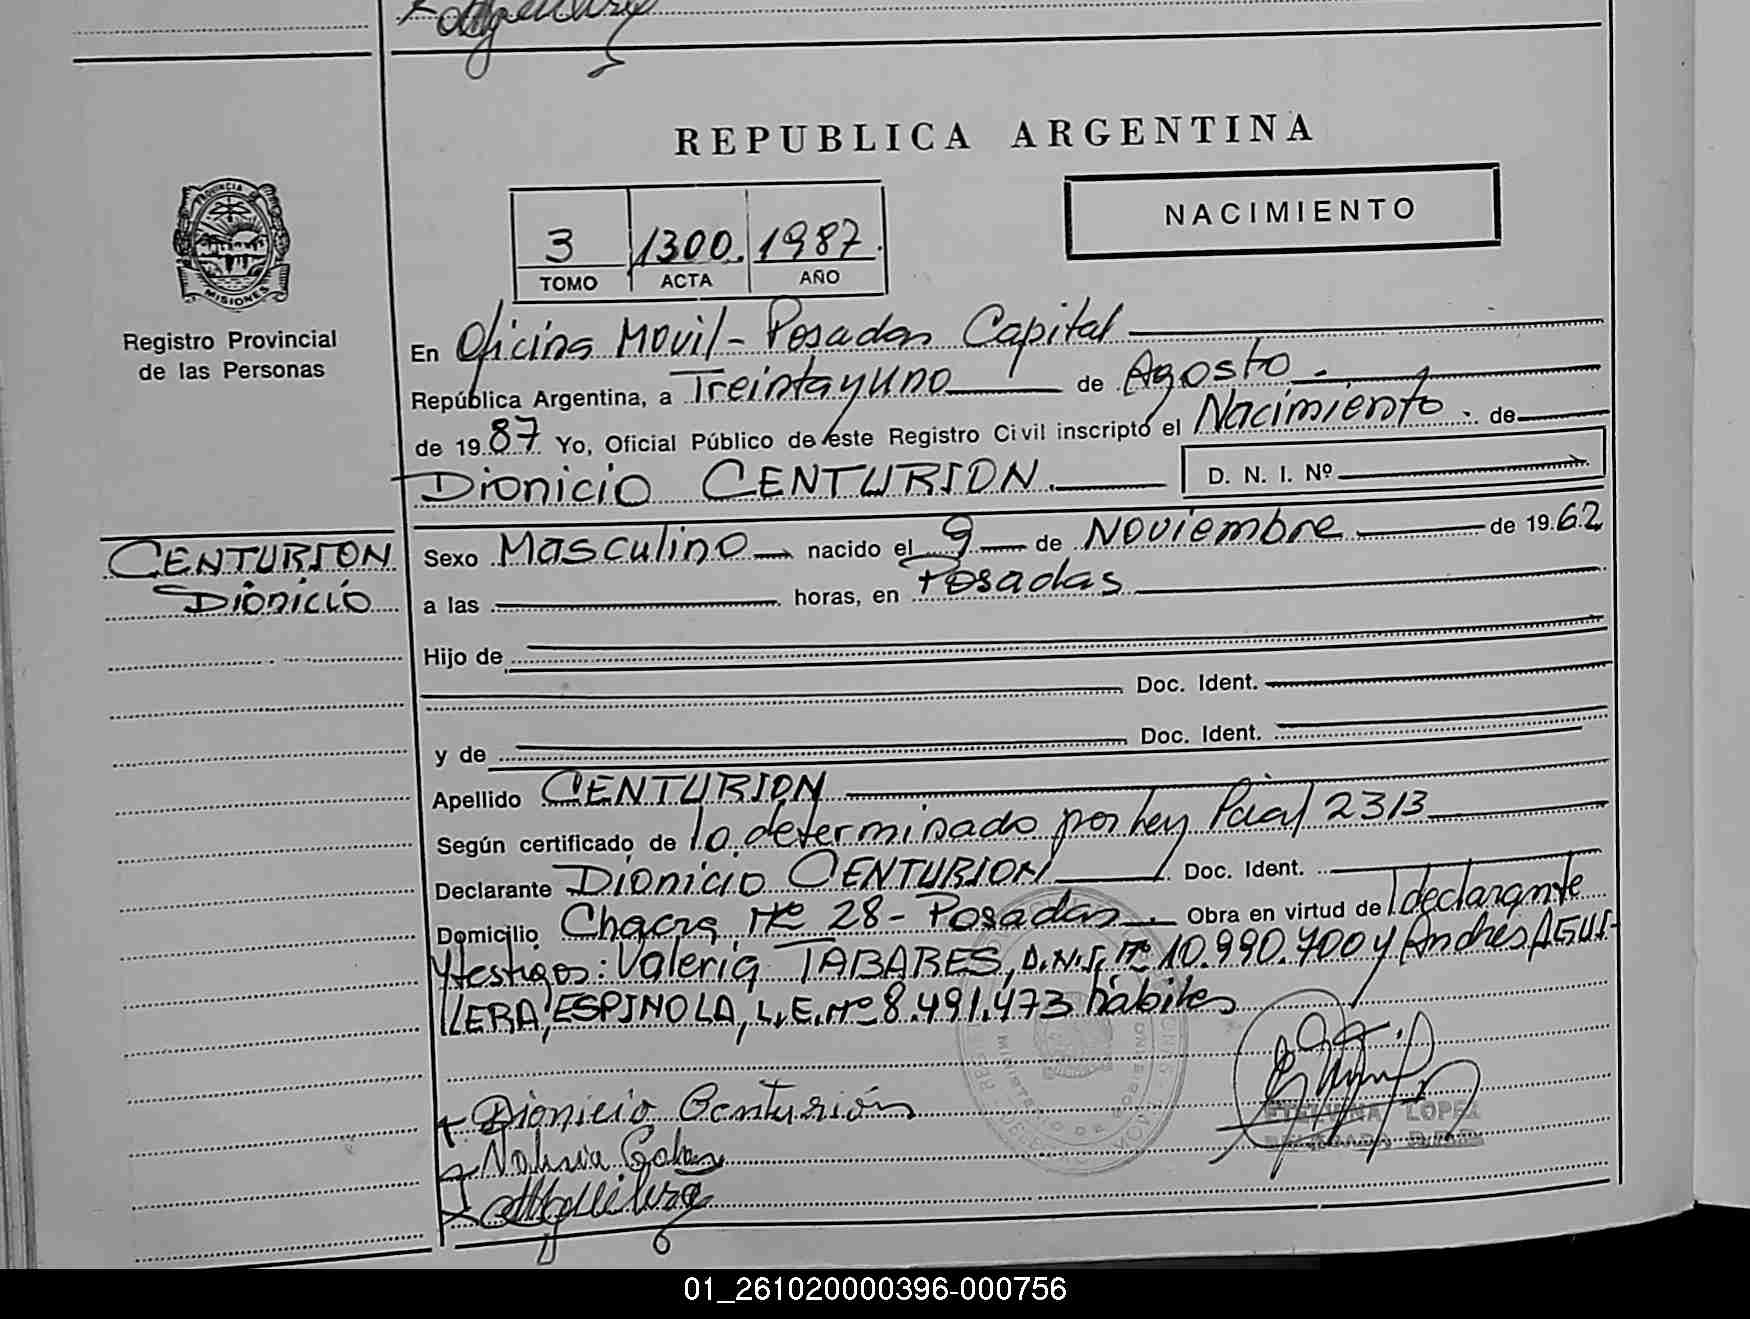 REPUBLICA ARGENTINA
NACIMIENTO
3 1300. 1987.
TOMO ACTA AÑO
PROVINCIA DE
MISIONES
Registro Provincial
de las Personas
En Oficina Movil - Posadas Capital
República Argentina, a Treinta y uno de Agosto.
de 1987 Yo, Oficial Público de este Registro Civil inscripto el Nacimiento. de
Dionicio CENTURION. D. N. I. Nº
CENTURION
Dionicio
Sexo Masculino nacido el 9 de Noviembre de 1962
a las horas, en Posadas
Hijo de
Doc. Ident.
y de Doc. Ident.
Apellido CENTURION
Según certificado de lo determinado por Ley Pcial 2313
Declarante Dionicio CENTURION Doc. Ident.
Domicilio Chacra Nº 28 - Posadas. Obra en virtud de l declarante
y testigos: Valeria TABARES, D.N.I. Nº 10.990.700 y Andres AGUI-
LERA, ESPINOLA, L.E. Nº 8.491.473 hábiles
Dionicio Centurión
ETELVINA LOPEZ
01_261020000396-000756